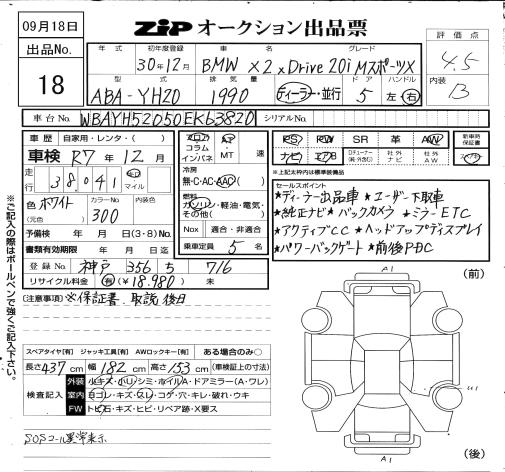 09月18日
ZiP オークション出品票
出品No.
18
年式 初年度登録 車名 グレード
30年12月 BMW X2 xDrive 20i MスポーツX
型式 排気量 ドア ハンドル
ABA-YH20 1990 ディーラー・並行 5 左・右
評価点
4.5
内装
B
車台No. WBAYH52050EK63820 シリアルNo.
車歴 自家用・レンタ・( )
車検 R7年12月
走行 38,041 km マイル
色 ホワイト カラーNo. 300 内装色
(元色)
予備検 年 月 日(3・8)No.
書類有効期限 年 月 日迄
登録No. 神戸 356 ち 716
リサイクル料金 有(¥18,980) 未
フロア AT
コラム
インパネ MT 速
冷房
無・C・AC・AAC( )
燃料
ガソリン・軽油・電気・
その他( )
Nox 適合・非適合
乗車定員 5 名
PS PW SR 革 AW
ナビ エアB 社外ナビ 社外AW
新車時保証書
※上記太枠内は標準装備品
セールスポイント
★ディーラー出品車 ★ユーザー下取車
★純正ナビ ★バックカメラ ★ミラーETC
★アクティブCC ★ヘッドアップディスプレイ
★パワーバックゲート ★前後PDC
(注意事項) ※保証書、取説 後日
※ご記入の際はボールペンで強くご記入下さい。
スペアタイヤ[有] ジャッキ工具[有] AWロックキー[有] ある場合のみ○
長さ 437 cm 幅 182 cm 高さ 153 cm (車検証上の寸法)
検査記入
外装 小キズ・小ヘコ・シミ・ホイルA・ドアミラー(A・ワレ)
室内 ヨゴレ・キズ・スレ・コゲ・穴・キレ・破れ・ウキ
FW トビ石・キズ・ヒビ・リペア跡・X要ス
SOSコール異常表示
(前)
A1
U1
A1
(後)